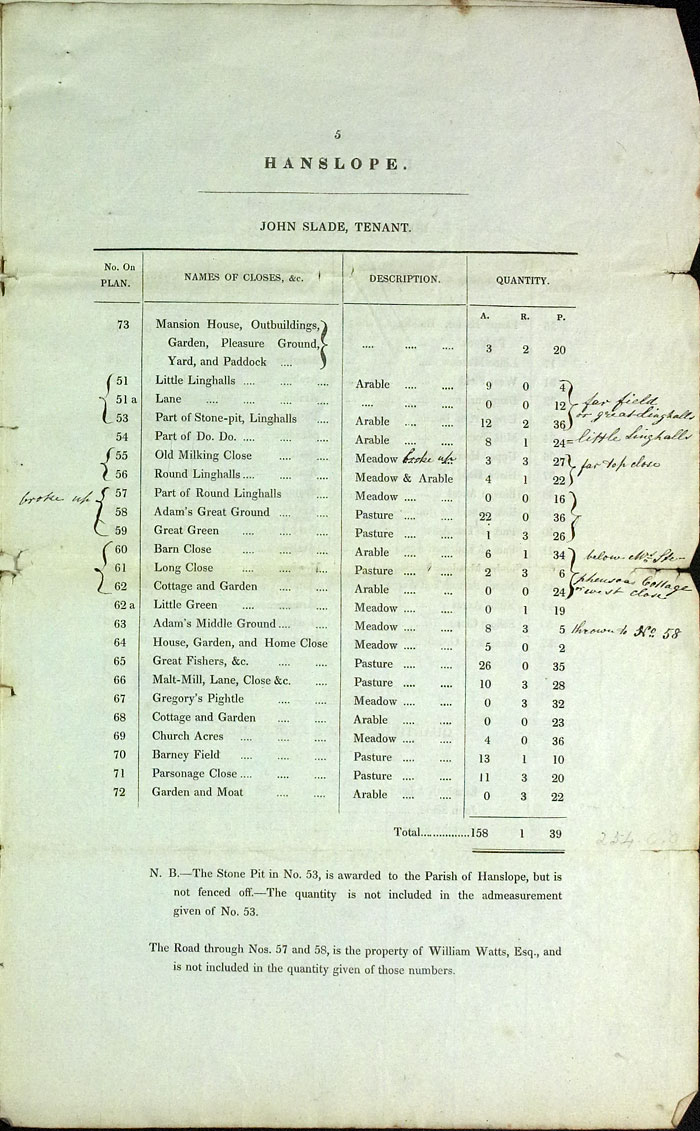 5
HANSLOPE.
JOHN SLADE, TENANT.
No. On PLAN. NAMES OF CLOSES, &c. DESCRIPTION. QUANTITY.
A. R. P.
73 Mansion House, Outbuildings,
Garden, Pleasure Ground, .... .... .... 3 2 20
Yard, and Paddock ....
51 Little Linghalls .... .... .... Arable .... .... 9 0 4
51 a Lane .... .... .... .... .... .... 0 0 12 far field
53 Part of Stone-pit, Linghalls .... Arable .... .... 12 2 36 or great linghalls
54 Part of Do. Do. .... .... .... Arable .... .... 8 1 24 = little linghalls
55 Old Milking Close .... .... Meadow broke up 3 3 27
56 Round Linghalls .... .... .... Meadow & Arable 4 1 22 far top close
broke up 57 Part of Round Linghalls .... Meadow .... .... 0 0 16
58 Adam's Great Ground .... .... Pasture .... .... 22 0 36
59 Great Green .... .... .... Pasture .... .... 1 3 26
60 Barn Close .... .... .... Arable .... .... 6 1 34 below Mrs. Ste-
61 Long Close .... .... .... Pasture .... .... 2 3 6 phensons Cottage
62 Cottage and Garden .... .... Arable .... .... 0 0 24 or west close
62 a Little Green .... .... .... Meadow .... .... 0 1 19
63 Adam's Middle Ground .... .... Meadow .... .... 8 3 5 thrown to No. 58
64 House, Garden, and Home Close Meadow .... .... 5 0 2
65 Great Fishers, &c. .... .... Pasture .... .... 26 0 35
66 Malt-Mill, Lane, Close &c. .... Pasture .... .... 10 3 28
67 Gregory's Pightle .... .... Meadow .... .... 0 3 32
68 Cottage and Garden .... .... Arable .... .... 0 0 23
69 Church Acres .... .... .... Meadow .... .... 4 0 36
70 Barney Field .... .... .... Pasture .... .... 13 1 10
71 Parsonage Close .... .... .... Pasture .... .... 11 3 20
72 Garden and Moat .... .... Arable .... .... 0 3 22
Total................158 1 39 254
N. B.—The Stone Pit in No. 53, is awarded to the Parish of Hanslope, but is
not fenced off.—The quantity is not included in the admeasurement
given of No. 53.
The Road through Nos. 57 and 58, is the property of William Watts, Esq., and
is not included in the quantity given of those numbers.